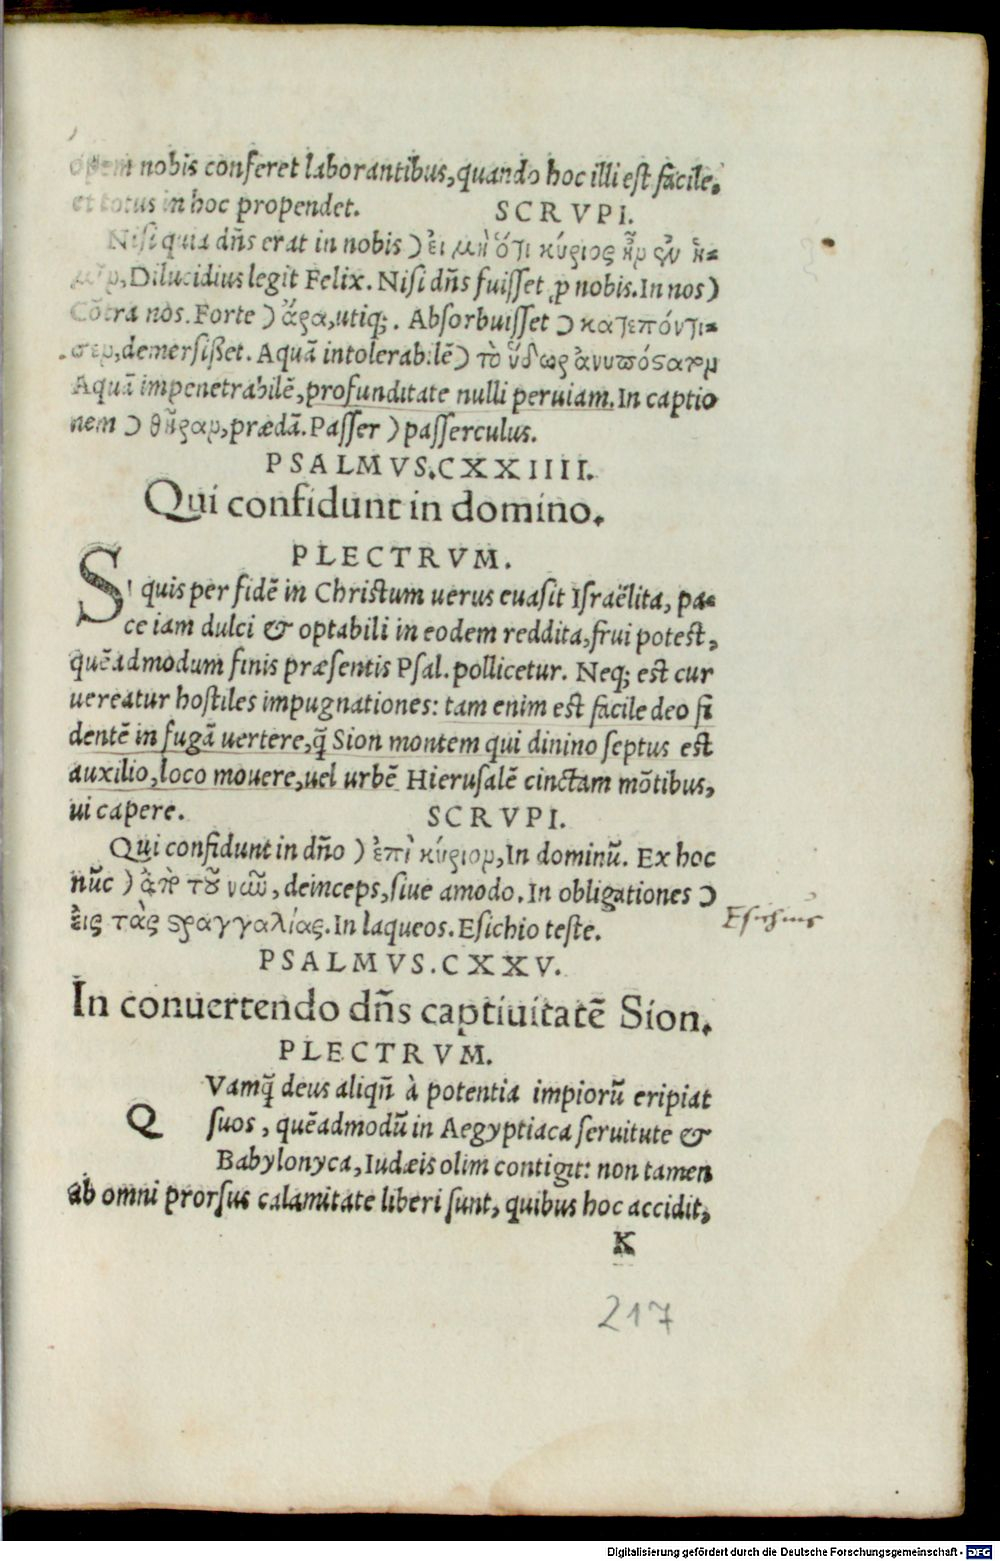 opem nobis conferet laborantibus, quando hoc illi est facile.
et totus in hoc propendet. SCRVPI.
Nisi quia dñs erat in nobis ) ἐι μὴ ὅτι κύριος ἦν ἐν ἡ-
μῖν, Dilucidius legit Felix. Nisi dñs fuisset ꝓ nobis. In nos )
Cõtra nos. Forte ) ἄρα, utiq;. Absorbuisset ) κατεπόντι-
σεν, demersißet. Aquã intolerabilẽ ) τὸ ὕδωρ ἀνυπόςατον
Aquã impenetrabilẽ, profunditate nulli peruiam. In captio
nem ) θήραν, prædã. Passer ) passerculus.
PSALMVS. CXXIIII.
Qui confidunt in domino.
PLECTRVM.
Si quis per fidẽ in Christum uerus euasit Israëlita, pa-
ce iam dulci & optabili in eodem reddita, frui potest,
quẽadmodum finis præsentis Psal. pollicetur. Neq; est cur
uereatur hostiles impugnationes: tam enim est facile deo fi
dentẽ in fugã uertere, q̃ Sion montem qui dinino septus est
auxilio, loco mouere, uel urbẽ Hierusalẽ cinctam mõtibus,
ui capere. SCRVPI.
Qui confidunt in dño ) ἐπὶ κύριον, In dominũ. Ex hoc
nũc ) ἀπὸ τοῦ νῦν, deinceps, siue amodo. In obligationes )
ἐις τὰς ςραγγαλίας. In laqueos. Esichio teste.
Esichius
PSALMVS. CXXV.
In conuertendo dñs captiuitatẽ Sion.
PLECTRVM.
QVamq̃ deus aliqñ à potentia impiorũ eripiat
suos, quẽadmodũ in Aegyptiaca seruitute &
Babylonyca, Iudæis olim contigit: non tamen
ab omni prorsus calamitate liberi sunt, quibus hoc accidit,
K
217
Digitalisierung gefördert durch die Deutsche Forschungsgemeinschaft - DFG